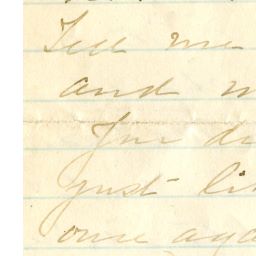 Tell me
and
You di
just li
once aga